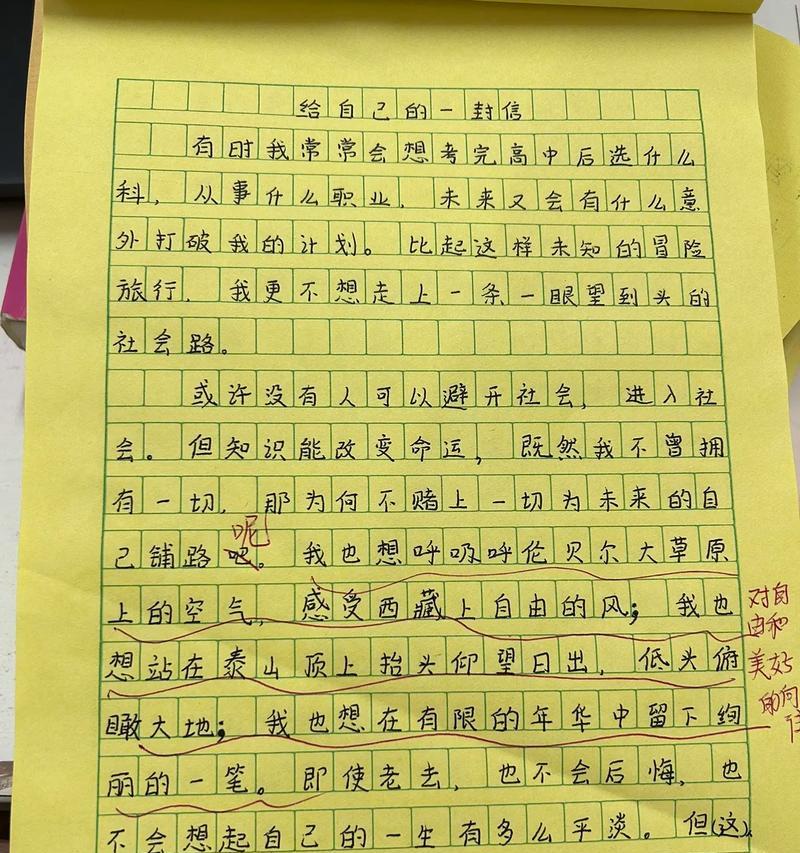 给自己的一封信
有时我常常会想考完高中后选什么
科，从事什么职业，未来又会有什么意
外打破我的计划。比起这样未知的冒险
旅行，我更不想走上一条一眼望到头的
社会路。
或许没有人可以避开社会，进入社
会。但知识能改变命运，既然我不曾拥
有一切，那为何不赌上一切为未来的自
呢
己铺路吧。我也想呼吸呼伦贝尔大草原
上的空气，感受西藏上自由的风；我也
想站在泰山顶上抬头仰望日出，低头俯
瞰大地；我也想在有限的年华中留下绚
丽的一笔。即使老去，也不会后悔，也
不会想起自己的一生有多么平淡。但(这)
对自
由和
美好
的向
往